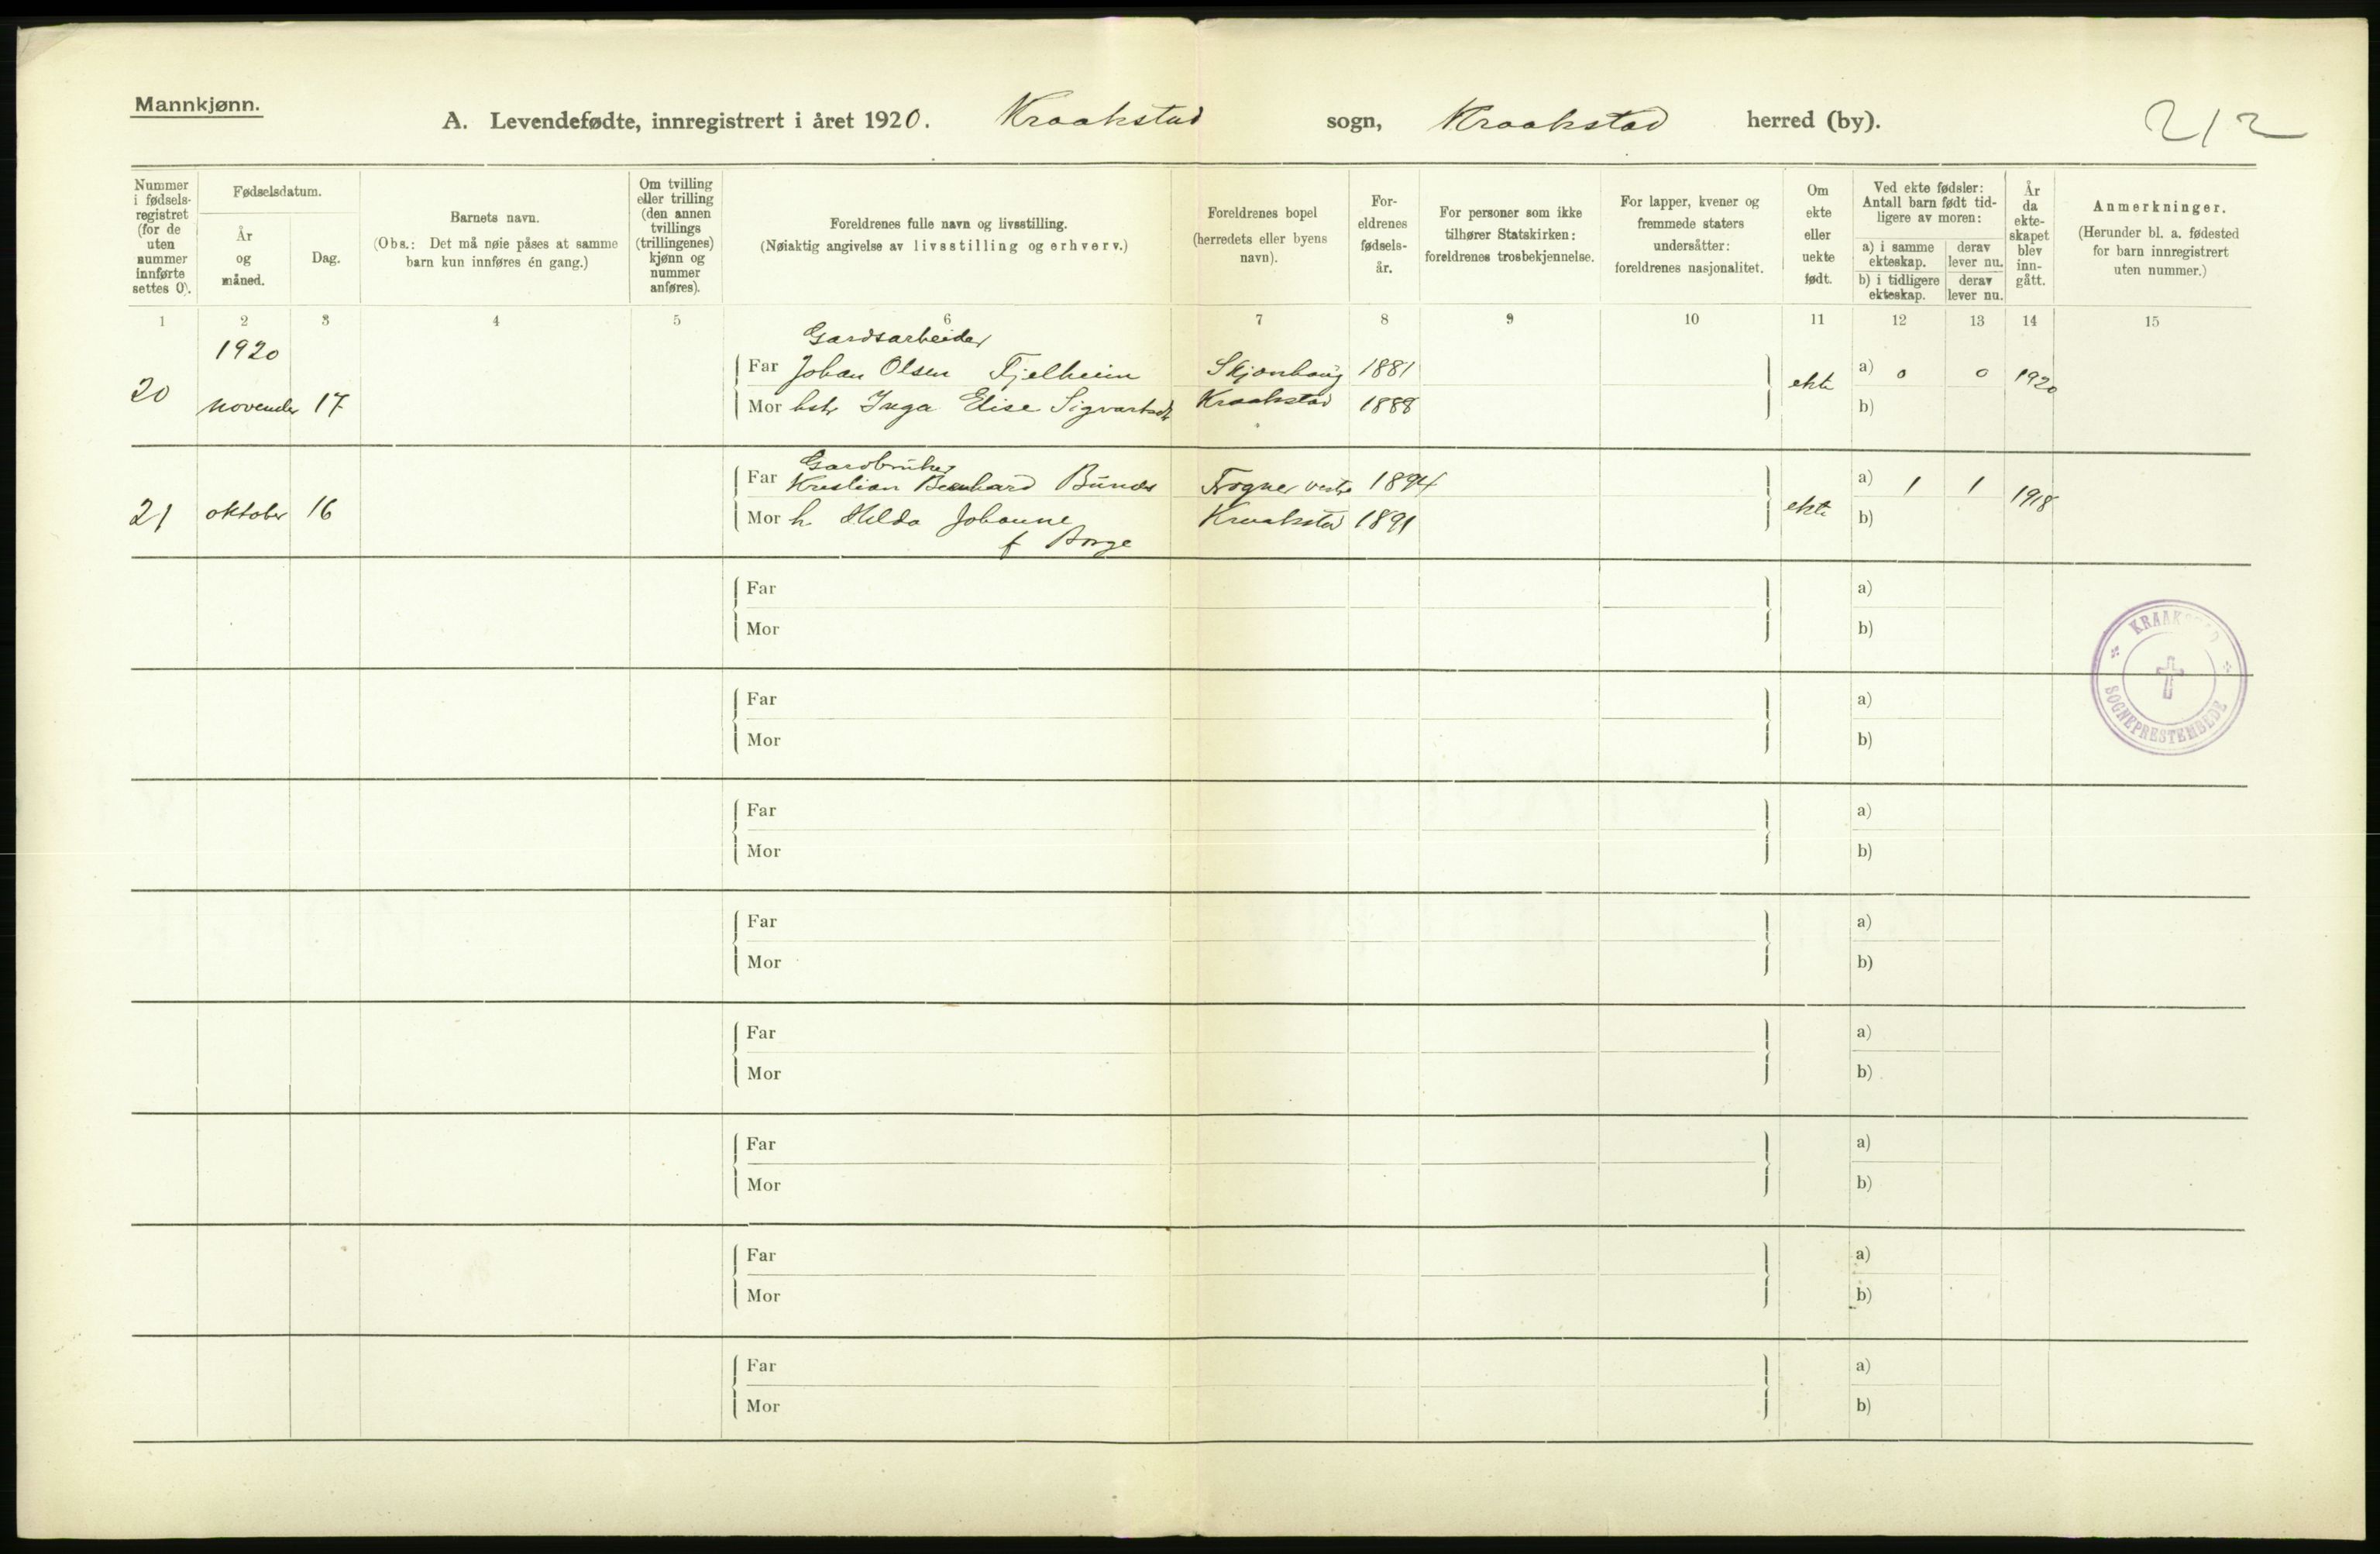 Mannkjønn.
A. Levendefødte, innregistrert i året 1920. Kraakstad sogn, Kraakstad herred (by). 212
Nummer i fødsels-registret (for de uten nummer innførte settes 0).
Fødselsdatum.
År og måned.
Dag.
Barnets navn.
(Obs.: Det må nøie påses at samme barn kun innføres én gang.)
Om tvilling eller trilling (den annen tvillings (trillingenes) kjønn og nummer anføres).
Foreldrenes fulle navn og livsstilling.
(Nøiaktig angivelse av livsstilling og erhverv.)
Foreldrenes bopel (herredets eller byens navn).
For-eldrenes fødsels-år.
For personer som ikke tilhører Statskirken: foreldrenes trosbekjennelse.
For lapper, kvener og fremmede staters undersåtter: foreldrenes nasjonalitet.
Om ekte eller uekte født.
Ved ekte fødsler: Antall barn født tid-ligere av moren:
a) i samme ekteskap.
derav lever nu.
b) i tidligere ekteskap.
derav lever nu.
År da ekte-skapet blev inn-gått.
Anmerkninger.
(Herunder bl. a. fødested for barn innregistrert uten nummer.)
1 2 3 4 5 6 7 8 9 10 11 12 13 14 15
1920 Gardsarbeider
Far Johan Olsen Fjelheim Skjønhaug 1881 a) 0 0
20 november 17 ekte 1920
Mor hstr Inga Elise Sigvartsdt Kraakstad 1888 b)
Gardbruker
Far Kristian Bernhard Bunes Frogner vestre 1894 a) 1 1
21 oktober 16 ekte 1918
Mor h. Hilda Johanne Kraakstad 1891 b)
f Borge
Far a)
Mor b)
KRAAKSTAD
SOGNEPRESTEMBEDE
Far a)
Mor b)
Far a)
Mor b)
Far a)
Mor b)
Far a)
Mor b)
Far a)
Mor b)
Far a)
Mor b)
Far a)
Mor b)